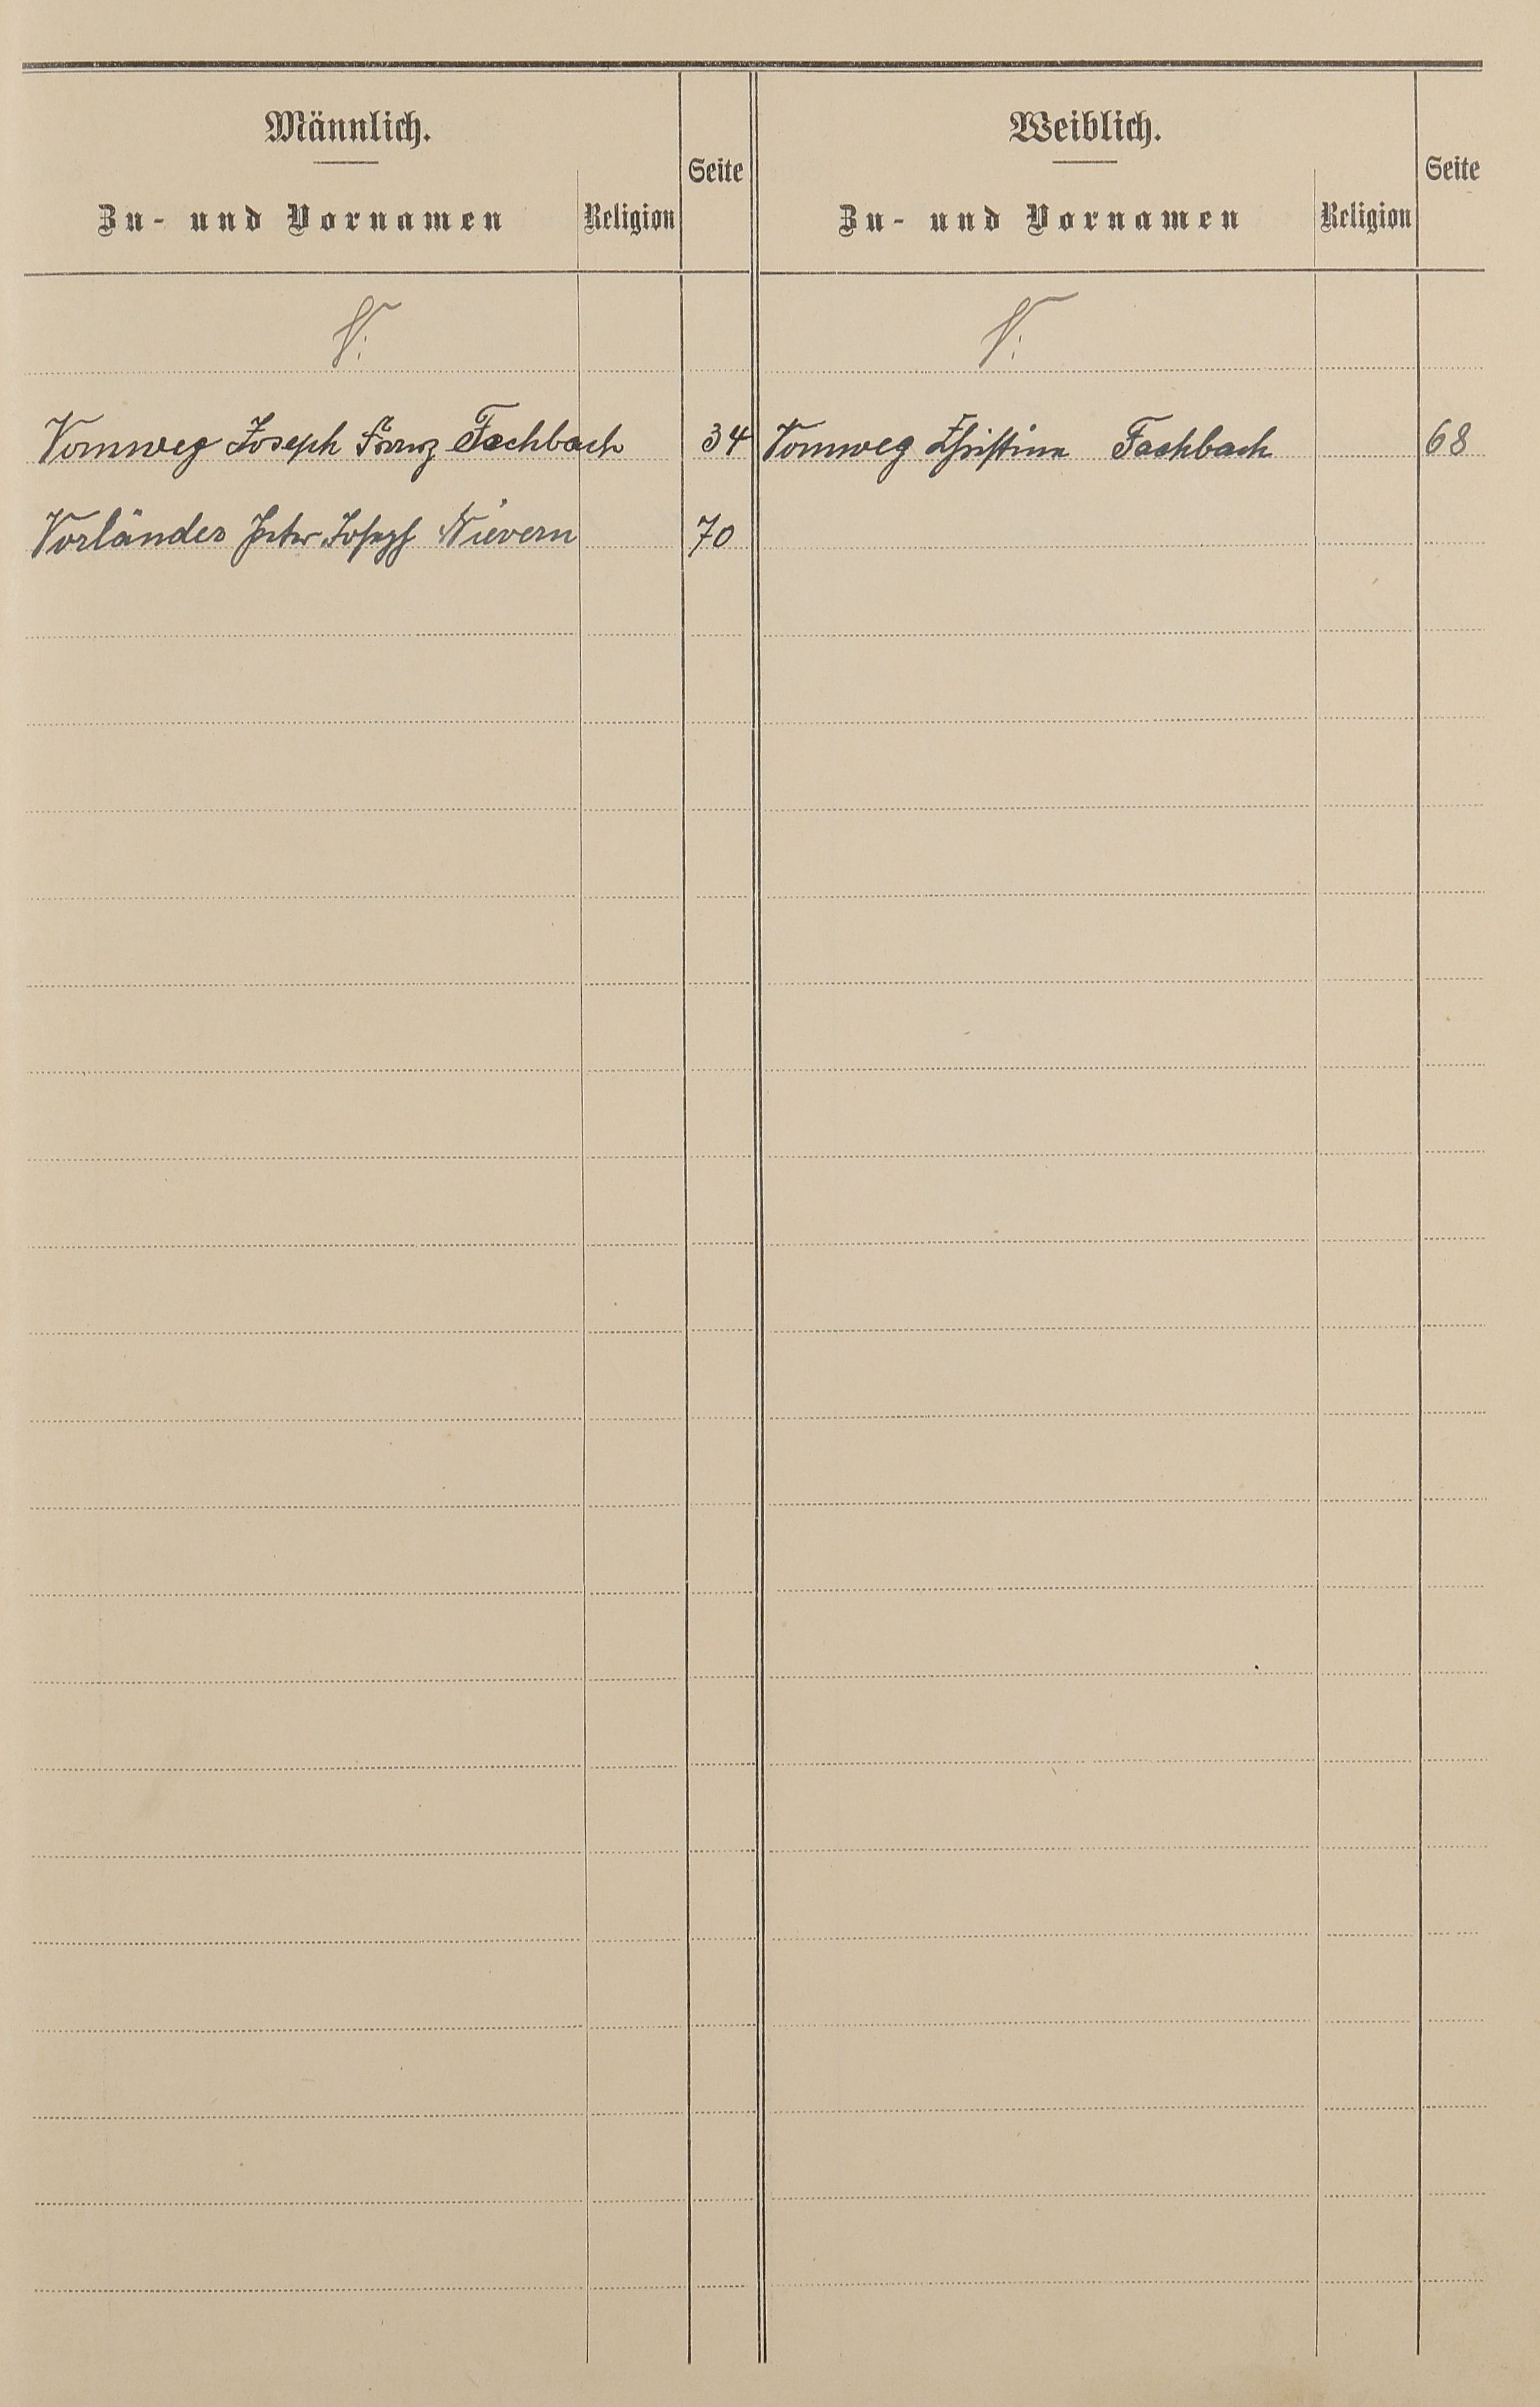 Männlich.
Zu- und Vornamen
Religion
Seite
V.
Vomweg Joseph Franz Fachbach 34
Vorländer Peter Joseph Nievern 70
Weiblich.
Zu- und Vornamen
Religion
Seite
V.
Vomweg Christina Fachbach 68